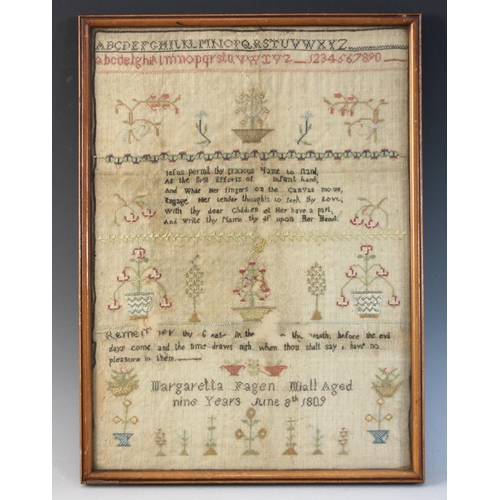 ABCDEFGHIKLMNOPQRSTUVWXYZ
abcdefghiklmnopqrstuvwxyz 1234567890
Jesus permit thy gracious Name to stand,
As the first Efforts of Infant hand,
And While Her fingers on the Canvas move,
Engage Her tender thoughts to seek thy Love,
With thy dear Children let Her have a part,
And write thy Name thy self upon Her Heart
Remember thy in the youth, before the evil
days come and the time draws nigh when thou shalt say i have no
pleasure in them
Margaretta Fagen Miall Aged
nine Years June 8th 1809